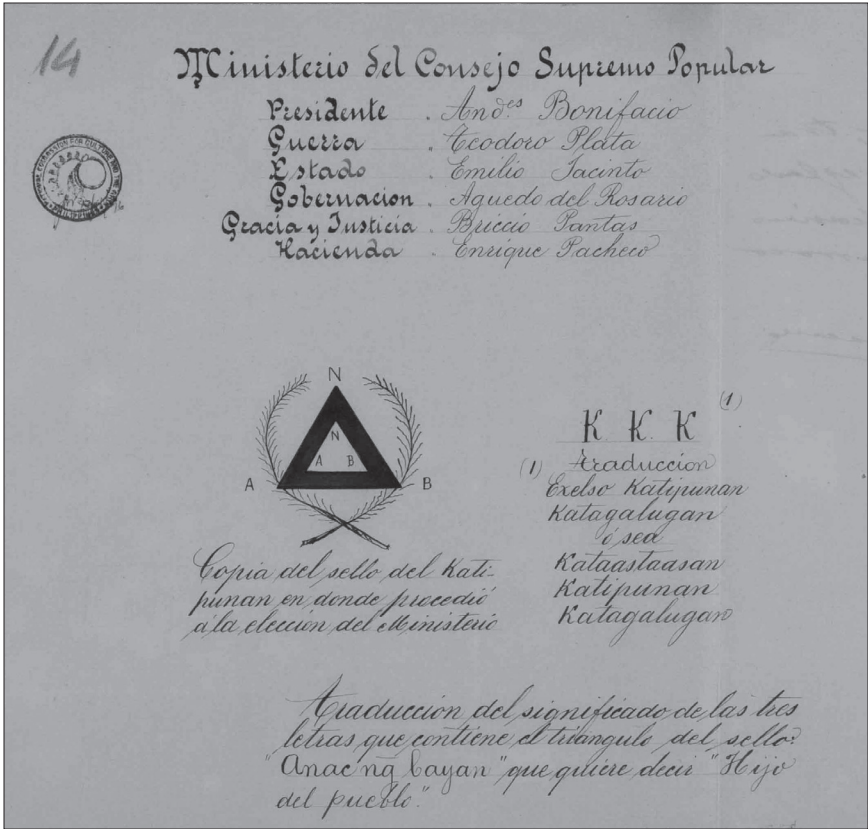 14
Ministerio del Consejo Supremo Popular
Presidente . And.es Bonifacio
Guerra . Teodoro Plata
Estado . Emilio Jacinto
Gobernacion . Aguedo del Rosario
Gracia y Justicia . Briccio Pantas
Hacienda . Enrique Pacheco
N
N
A B
A B
Copia del sello del Kati-
punan en donde procedió
á la elección del Ministerio
K. K. K (1)
(1) Traduccion
Exelso Katipunan
Katagalugan
ó sea
Kataastaasan
Katipunan
Katagalugan
Traducción del significado de las tres
letras que contiene el triángulo del sello:
"Anac ng bayan" que quiere decir "Hijo
del pueblo".